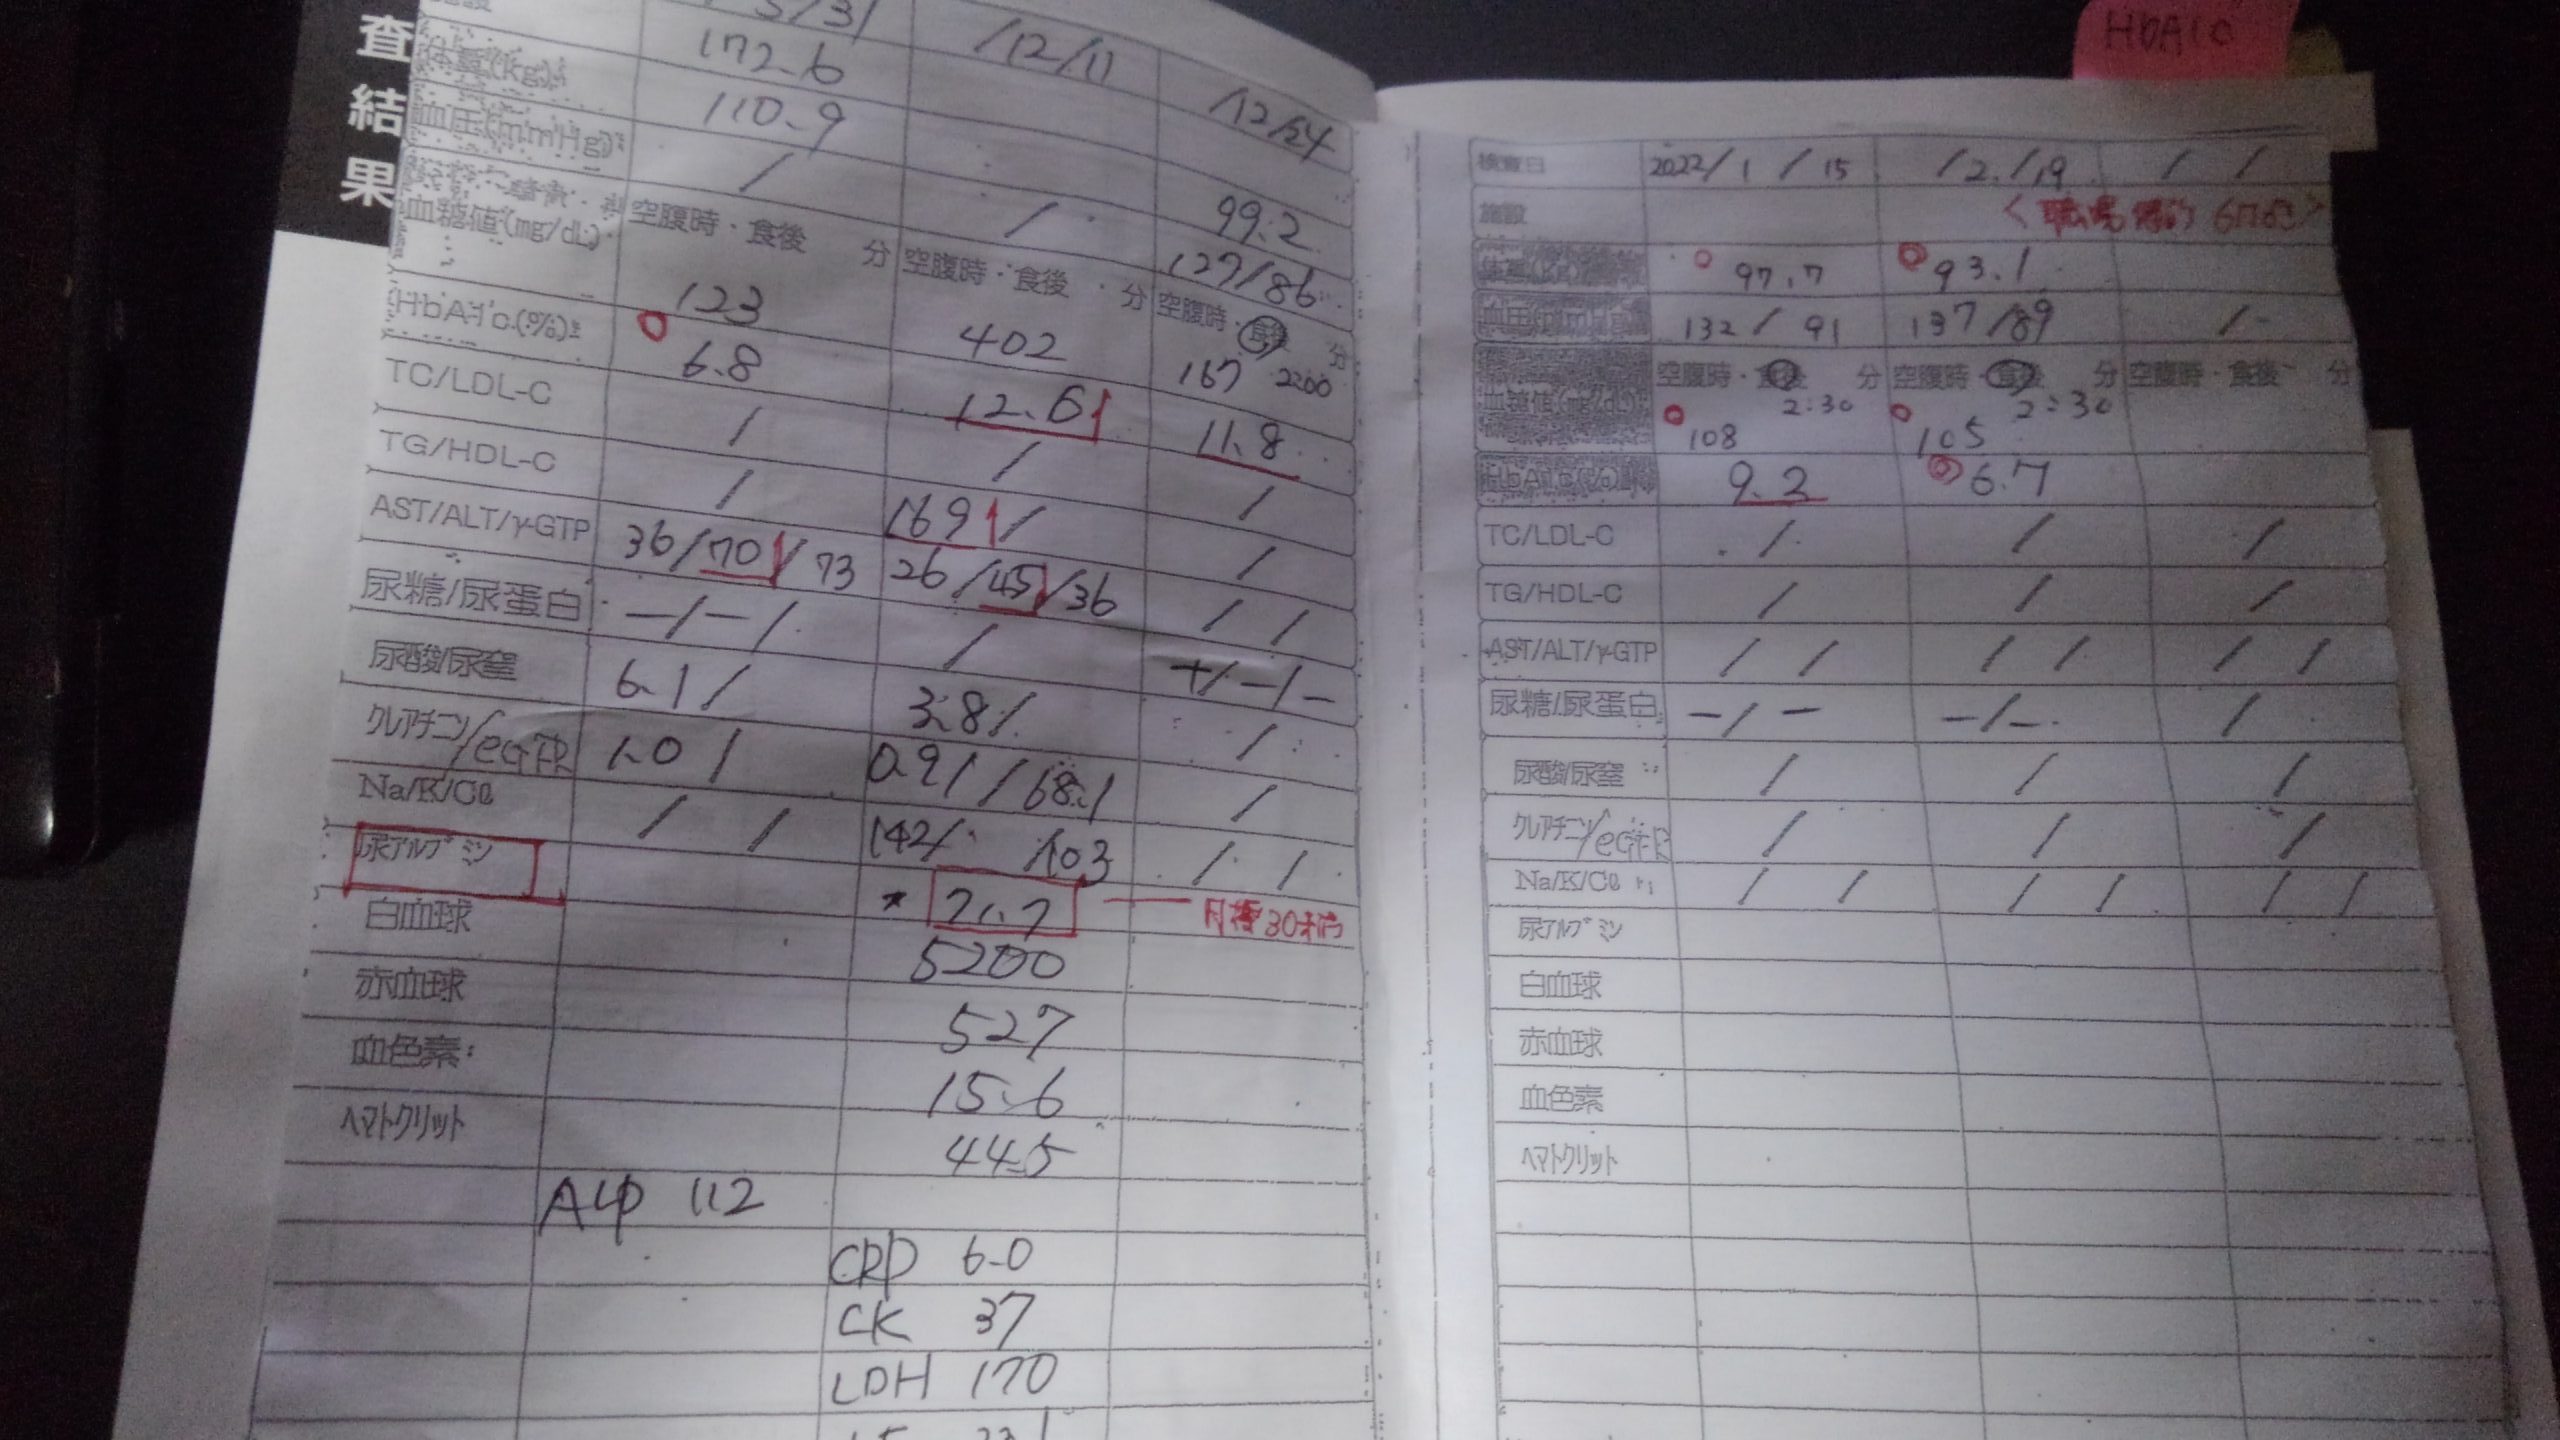 査結果
/5/31 /12/11 /12/24
施設 172.6
体重(kg) 110.9 99.2
血圧(mmHg) / / 127/86
血糖値(mg/dL) 空腹時・食後 分 空腹時・食後 分 空腹時・食後 分
123 402 167 2:00
HbA1c(%) 6.8 12.6↑ 11.8
TC/LDL-C / / /
TG/HDL-C / 169↑/ /
AST/ALT/γ-GTP 36/70↑/73 26/45↑/36 / /
尿糖/尿蛋白 -/-/ / +/-/-
尿酸/尿窒 6.1/ 3.8/ /
クレアチニン/eGFR 1.0/ 0.91/68.1 /
Na/K/Cl / / 142/ /103 / /
尿アルブミン * 21.7 30未満
白血球 5200
赤血球 527
血色素 15.6
ヘマトクリット 44.5
ALP 112
CRP 6.0
CK 37
LDH 170
HbA1c
検査日 2022/1/15 /2/19 / /
施設
体重(kg) 97.7 93.1
血圧(mmHg) 132/91 137/89 /
血糖値(mg/dL) 空腹時・食後 分 空腹時・食後 分 空腹時・食後 分
2:30 2:30
108 105
HbA1c(%) 9.2 6.7
TC/LDL-C / / /
TG/HDL-C / / /
AST/ALT/γ-GTP / / / / / /
尿糖/尿蛋白 -/- -/- /
尿酸/尿窒 / / /
クレアチニン/eGFR / / /
Na/K/Cl / / / / / /
尿アルブミン
白血球
赤血球
血色素
ヘマトクリット